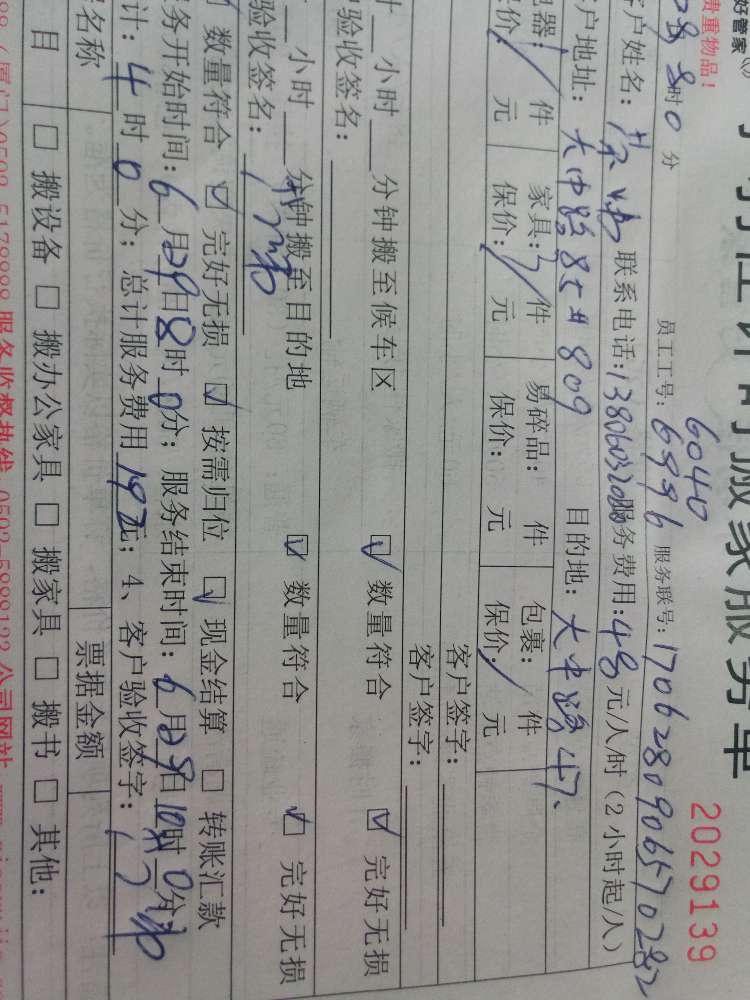 好管家
搬家服务单
2029139
贵重物品！
8时0分 员工工号：6040
6996 服务联号：1706280906570282
客户姓名： 联系电话：13806032088服务费用：48元/人/时（2小时起/人）
客户地址：大中路85号809 目的地：大中路47、
电器：/件 家具：/件 易碎品： 件 包裹：/件
保价： 元 保价： 元 保价： 元 保价： 元
客户签字：
客户签字：
计__小时__分钟搬至候车区 ☑数量符合 ☑完好无损
户验收签名：
__小时__分钟搬至目的地 ☑数量符合 ☑完好无损
验收签名：
☑数量符合 ☑完好无损 ☑按需归位 ☑现金结算 □转账汇款
服务开始时间：6月29日8时0分；服务结束时间：6月29日10时0分；
计：4时0分；总计服务费用192元；4、客户验收签字：
名称 票据金额
目 □搬设备 □搬办公家具 □搬家具 □搬书 □其他：
0592-5178888 服务监督热线：0592-5889123 公司网站：